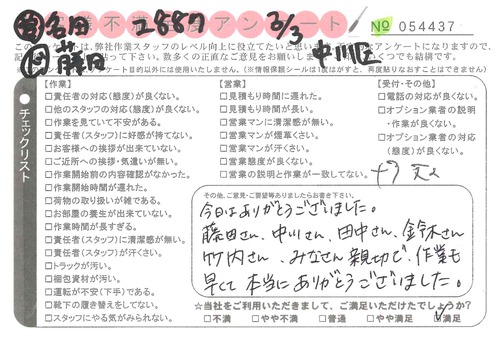 営 名日 2887 3/3 中川区
回 藤田
不満 アンケート
№ 054437
このアンケートは、弊社作業スタッフのレベル向上に役立てたいと思い
数多くの正直なご意見をお願いします
【作業】
□責任者の対応(態度)が良くない。
□他のスタッフの対応(態度)が良くない。
□作業を見ていて不安がある。
□責任者(スタッフ)に好感が持てない。
□お客様への挨拶が出来ていない。
□ご近所への挨拶・気遣いが無い。
□作業開始前の内容確認がなかった。
□作業開始時間が遅れた。
□荷物の取り扱いが雑である。
□お部屋の養生が出来ていない。
□作業時間が長すぎる。
□責任者(スタッフ)に清潔感が無い。
□責任者(スタッフ)が汗くさい。
□トラックが汚い。
□梱包資材が汚い。
□運転が不安(下手)である。
□靴下の履き替えをしてない。
□スタッフにやる気がみられない。
【営業】
□見積もり時間に遅れた。
□見積もり時間が長い。
□営業マンに清潔感が無い。
□営業マンが煙草くさい。
□営業マンが汗くさい。
□営業態度が良くない。
□営業の説明と作業が一致してない。
【受付・その他】
□電話の対応が良くない。
□オプション業者の説明
・作業が良くない。
□オプション業者の対応
(態度)が良くない。
チェックリスト
その他、ご意見・ご要望等ありましたらお書き下さい。
今日はありがとうございました。
藤田さん、中川さん、田中さん、鈴木さん
竹内さん、みなさん親切で、作業も
早くて本当にありがとうございました。
☆当社をご利用いただきまして、ご満足いただけたでしょうか?
□不満 □やや不満 □普通 □やや満足 □満足